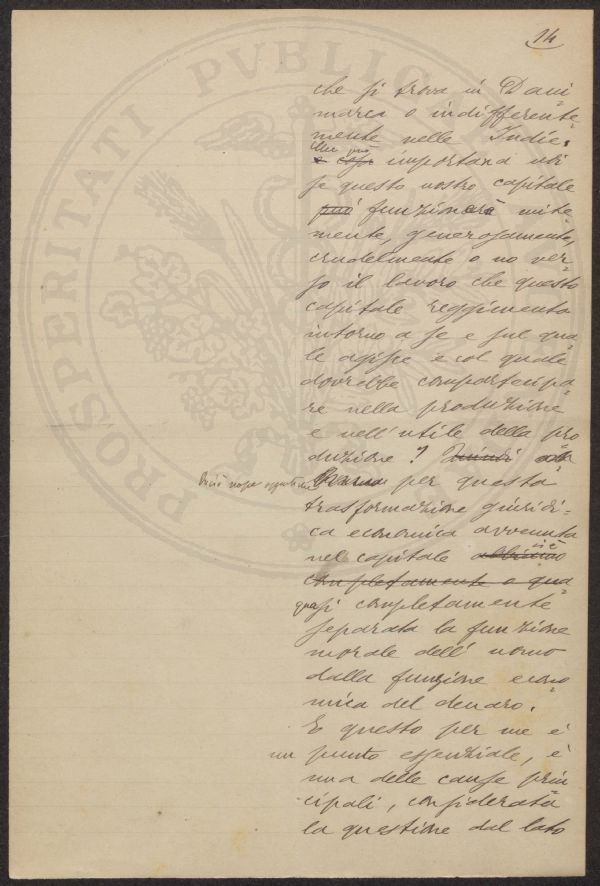 14
PROSPERITATI PVBLICAE
che si trova in Dani=
marca o indifferente=
mente nelle Indie.
Che più
e cosa importava noi
se questo nostro capitale
può funzionerà mite=
mente, generosamente,
crudelmente o no ver=
so il lavoro che questo
capitale reggimenta
intorno a se e sul qua=
le agisce e col quale
dovrebbe compartecipa=
re nella produzione
e nell'utile della pro
duzione? Quindi
per questa
trasformazione giuridi=
ca economica avvenuta
nel capitale abbiamo si è
completamente o qua
quasi completamente
separata la funzione
morale dell'uomo
dalla funzione econo
mica del denaro.
E questo per me è
un punto essenziale, è
una delle cause prin
cipali, considerata
la questione dal lato